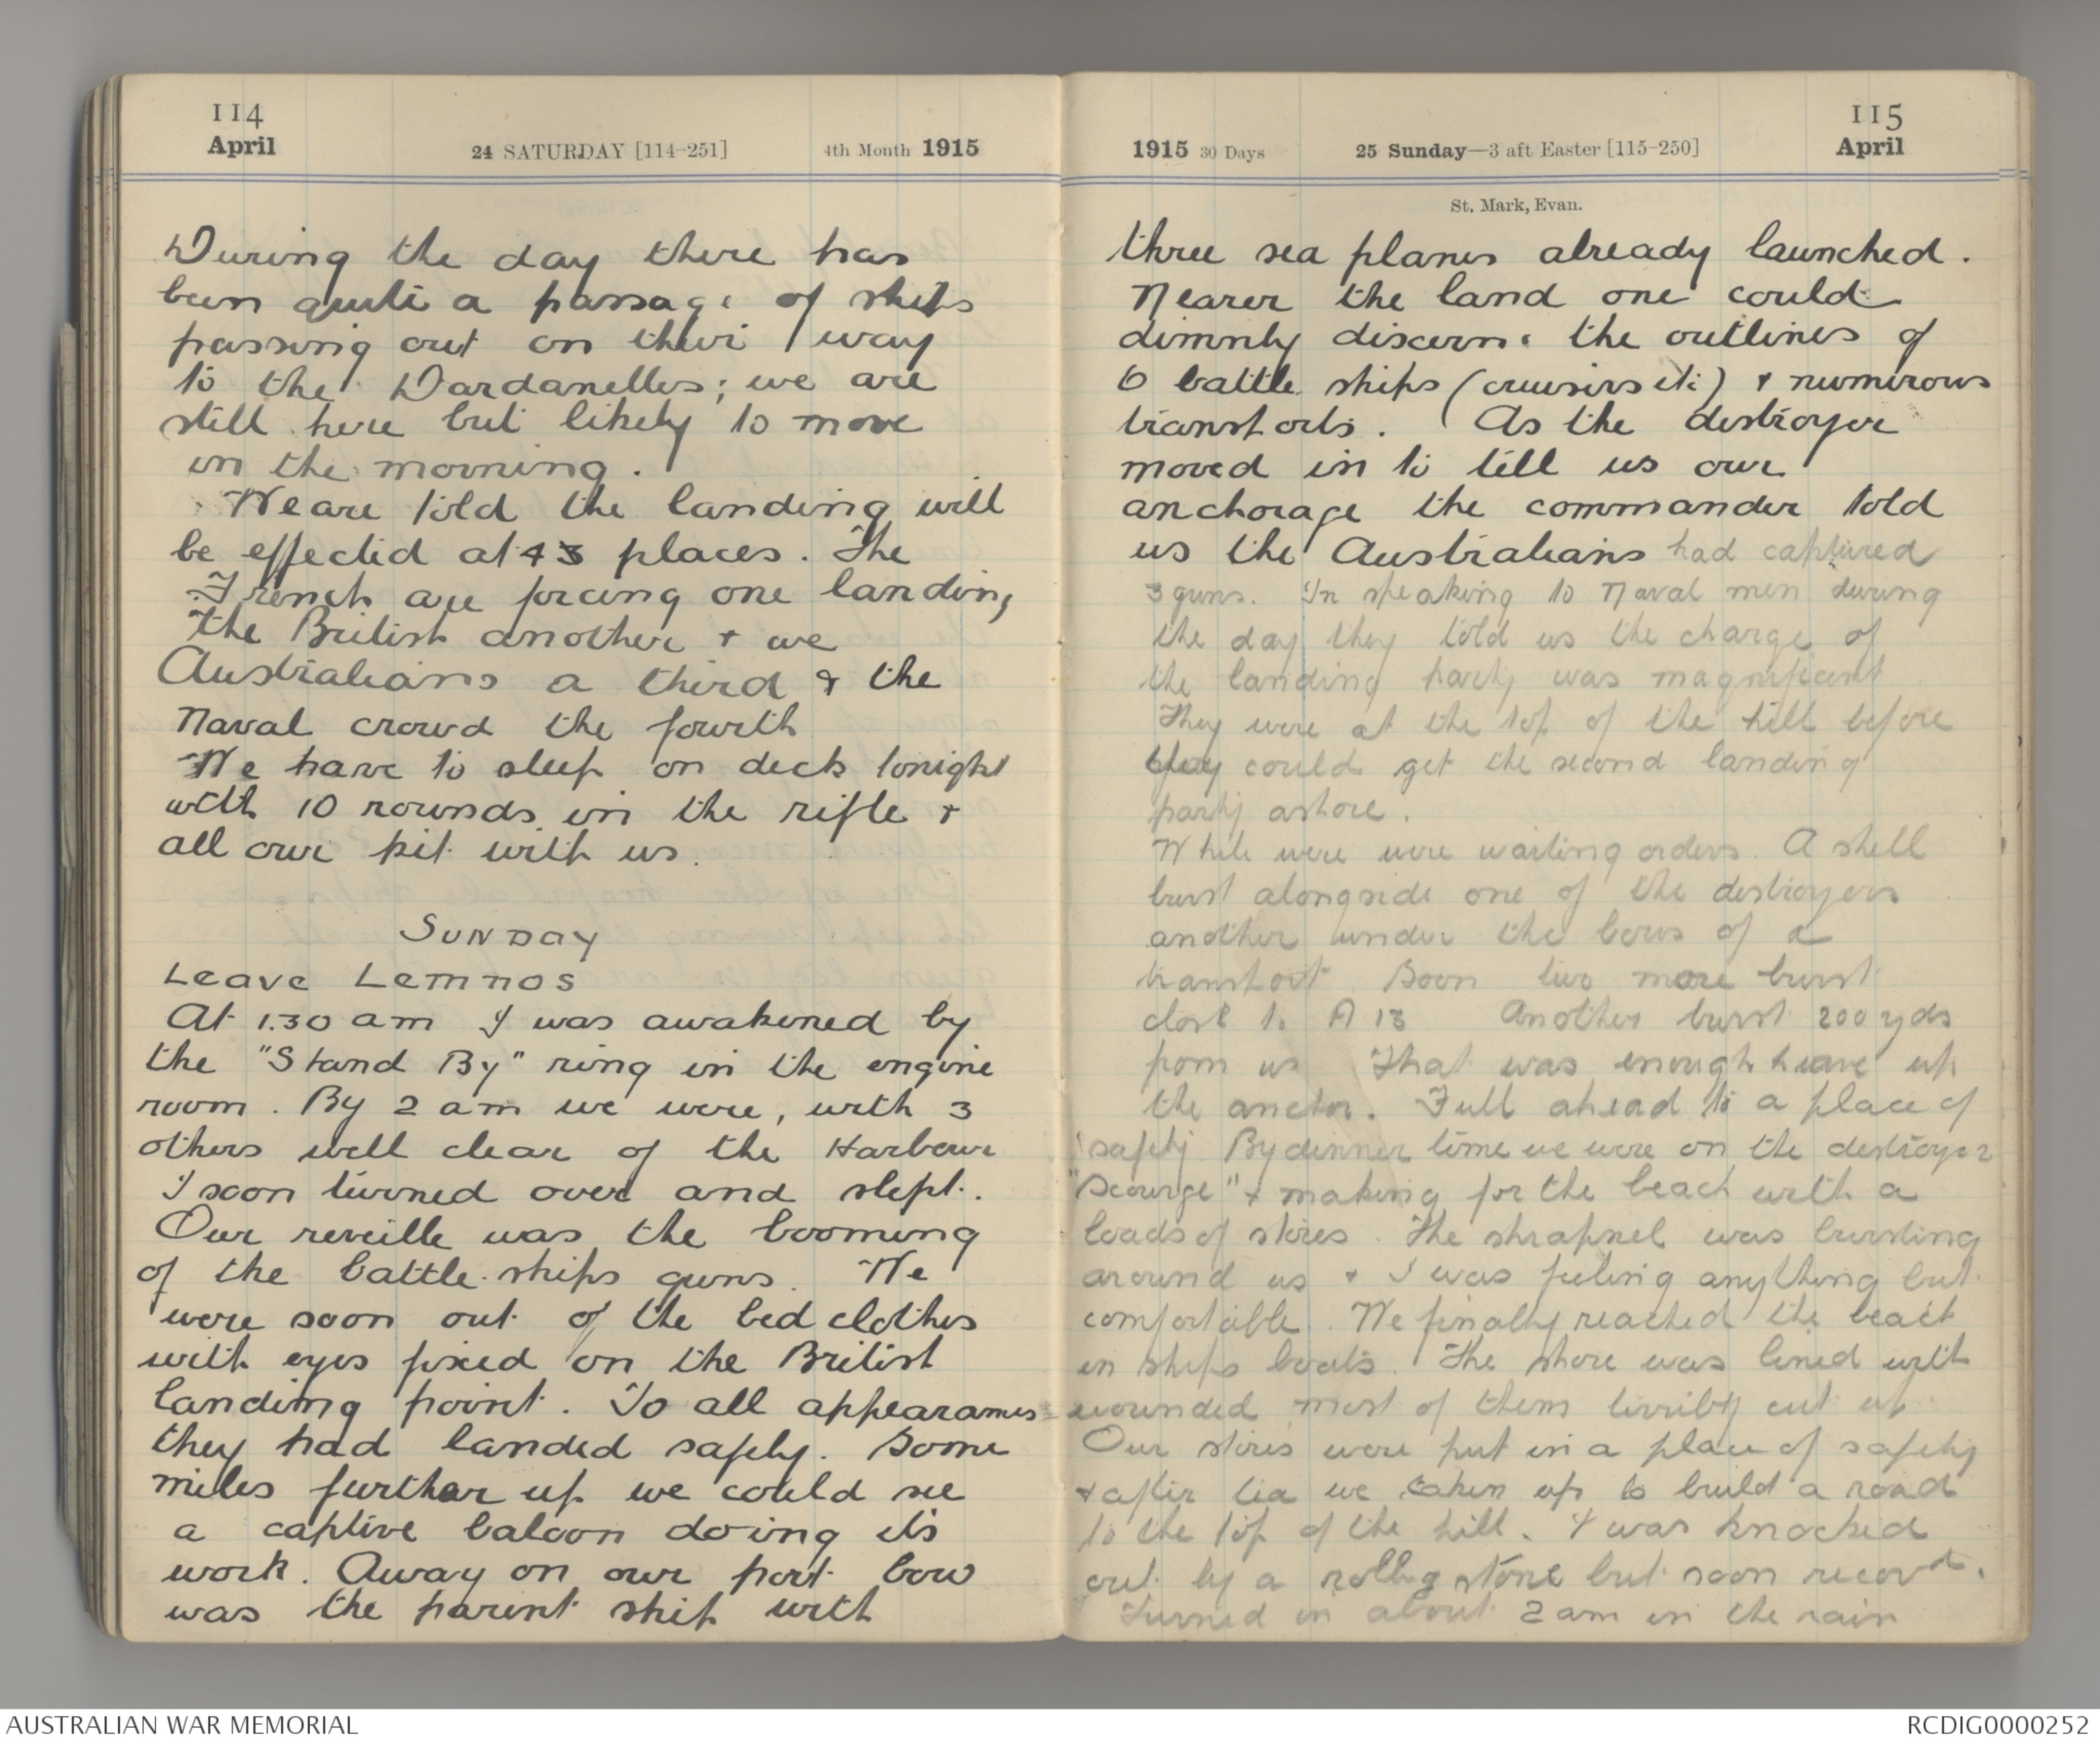 114
April
24 SATURDAY [114-251]
4th Month 1915
During the day there has
been quite a passage of ships
passing out on their way
to the Dardanelles; we are
still here but likely to move
in the morning.
We are told the landing will
be effected at 4 places. The
French are forcing one landing
the British another & we
Australians a third & the
Naval crowd the fourth
We have to sleep on deck tonight
with 10 rounds in the rifle &
all our kit with us.
SUNDAY
Leave Lemnos
At 1.30 am I was awakened by
the "Stand By" ring in the engine
room. By 2 am we were, with 3
others well clear of the Harbour
I soon turned over and slept.
Our reveille was the booming
of the battle ships guns. We
were soon out of the bed clothes
with eyes fixed on the British
landing point. To all appearances
they had landed safely. Some
miles further up we could see
a captive baloon doing its
work. Away on our port bow
was the parent ship with
115
April
1915 30 Days
25 Sunday—3 aft Easter [115-250]
St. Mark, Evan.
three sea planes already launched.
Nearer the land one could
dimnly discern the outlines of
6 battle ships (cruisers etc) & numerous
transports. As the destroyer
moved in to tell us our
anchorage the commander told
us the Australians had captured
3 guns. In speaking to Naval men during
the day they told us the charge of
the landing party was magnificent
They were at the top of the hill before
they could get the second landing
party ashore.
While were were waiting orders. A shell
burst alongside one of the destroyers
another under the bows of a
transport Soon two more burst
close to A 13 Another burst 200 yds
from us That was enough heave up
the anchor. Full ahead to a place of
safety. By dinner time we were on the destroyer
"Scourge" & making for the beach with a
loads of stores. The shrapnel was bursting
around us & I was feeling anything but
comfortable. We finally reached the beach
in ships boats. The shore was lined with
wounded most of them terribly cut up
Our stores were put in a place of safety
& after tea we taken up to build a road
to the top of the hill. I was knocked
out by a rolling stone but soon recov'd.
Turned in about 2 am in the rain
AUSTRALIAN WAR MEMORIAL
RCDIG0000252